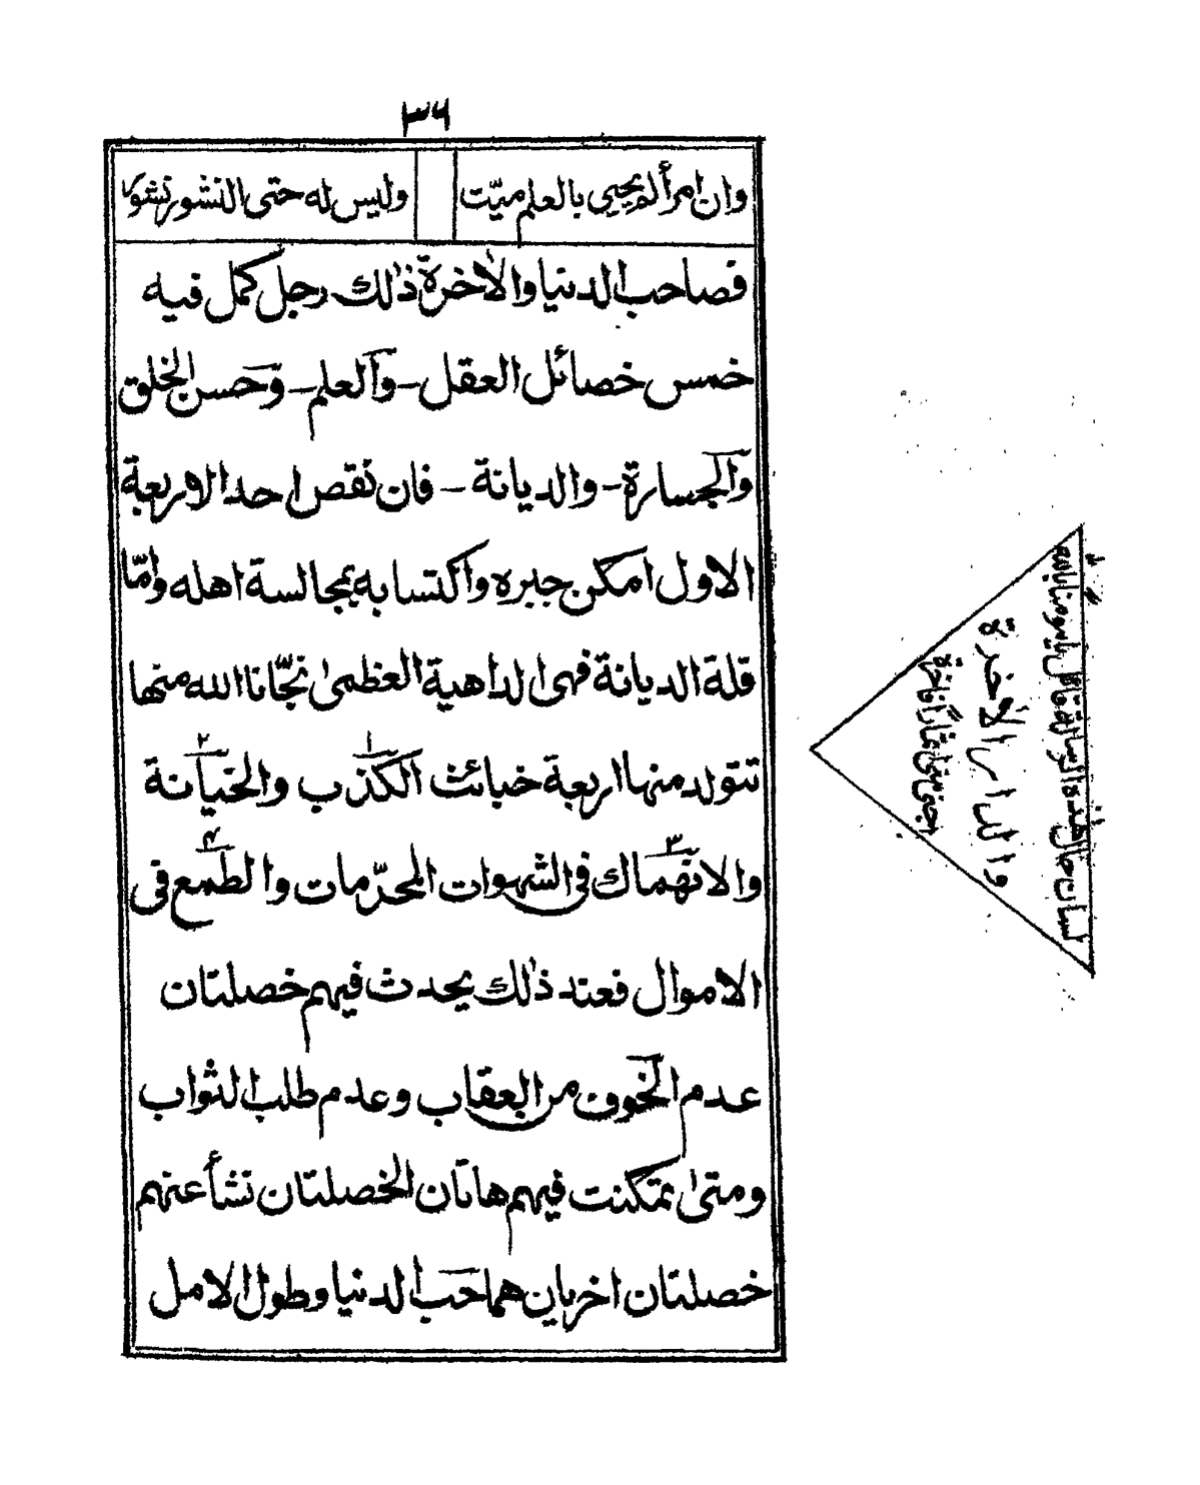 ٣٦
وان امرأ لم يحيى بالعلم ميّت
وليس له حتى النشور نشور
فصاحب الدنيا والأخرة ذٰلك رجل كمل فيه
خمس خصائل العقل - وآلعلم - وحسن الخلق
وآلجسارة - والديانة - فان نقص احد الاربعة
الاول امكن جبره واكتسابه بمجالسة اهله وامّا
قلة الديانة فهى الداهية العظمىٰ نجّانا الله منها
تتولد منها اربعة خبائث الكذب والخيانة
١ ٢
والانهماك فى الشهوات المحرّمات والطمع فى
٣ ٤
الاموال فعند ذٰلك يحدث فيهم خصلتان
عدم الخوف من العقاب وعدم طلب الثواب
ومتىٰ تمكنت فيهم هاتان الخصلتان تنشأ عنهم
خصلتان اخريان هما حب الدنيا وطول الامل
والدار الأخرة